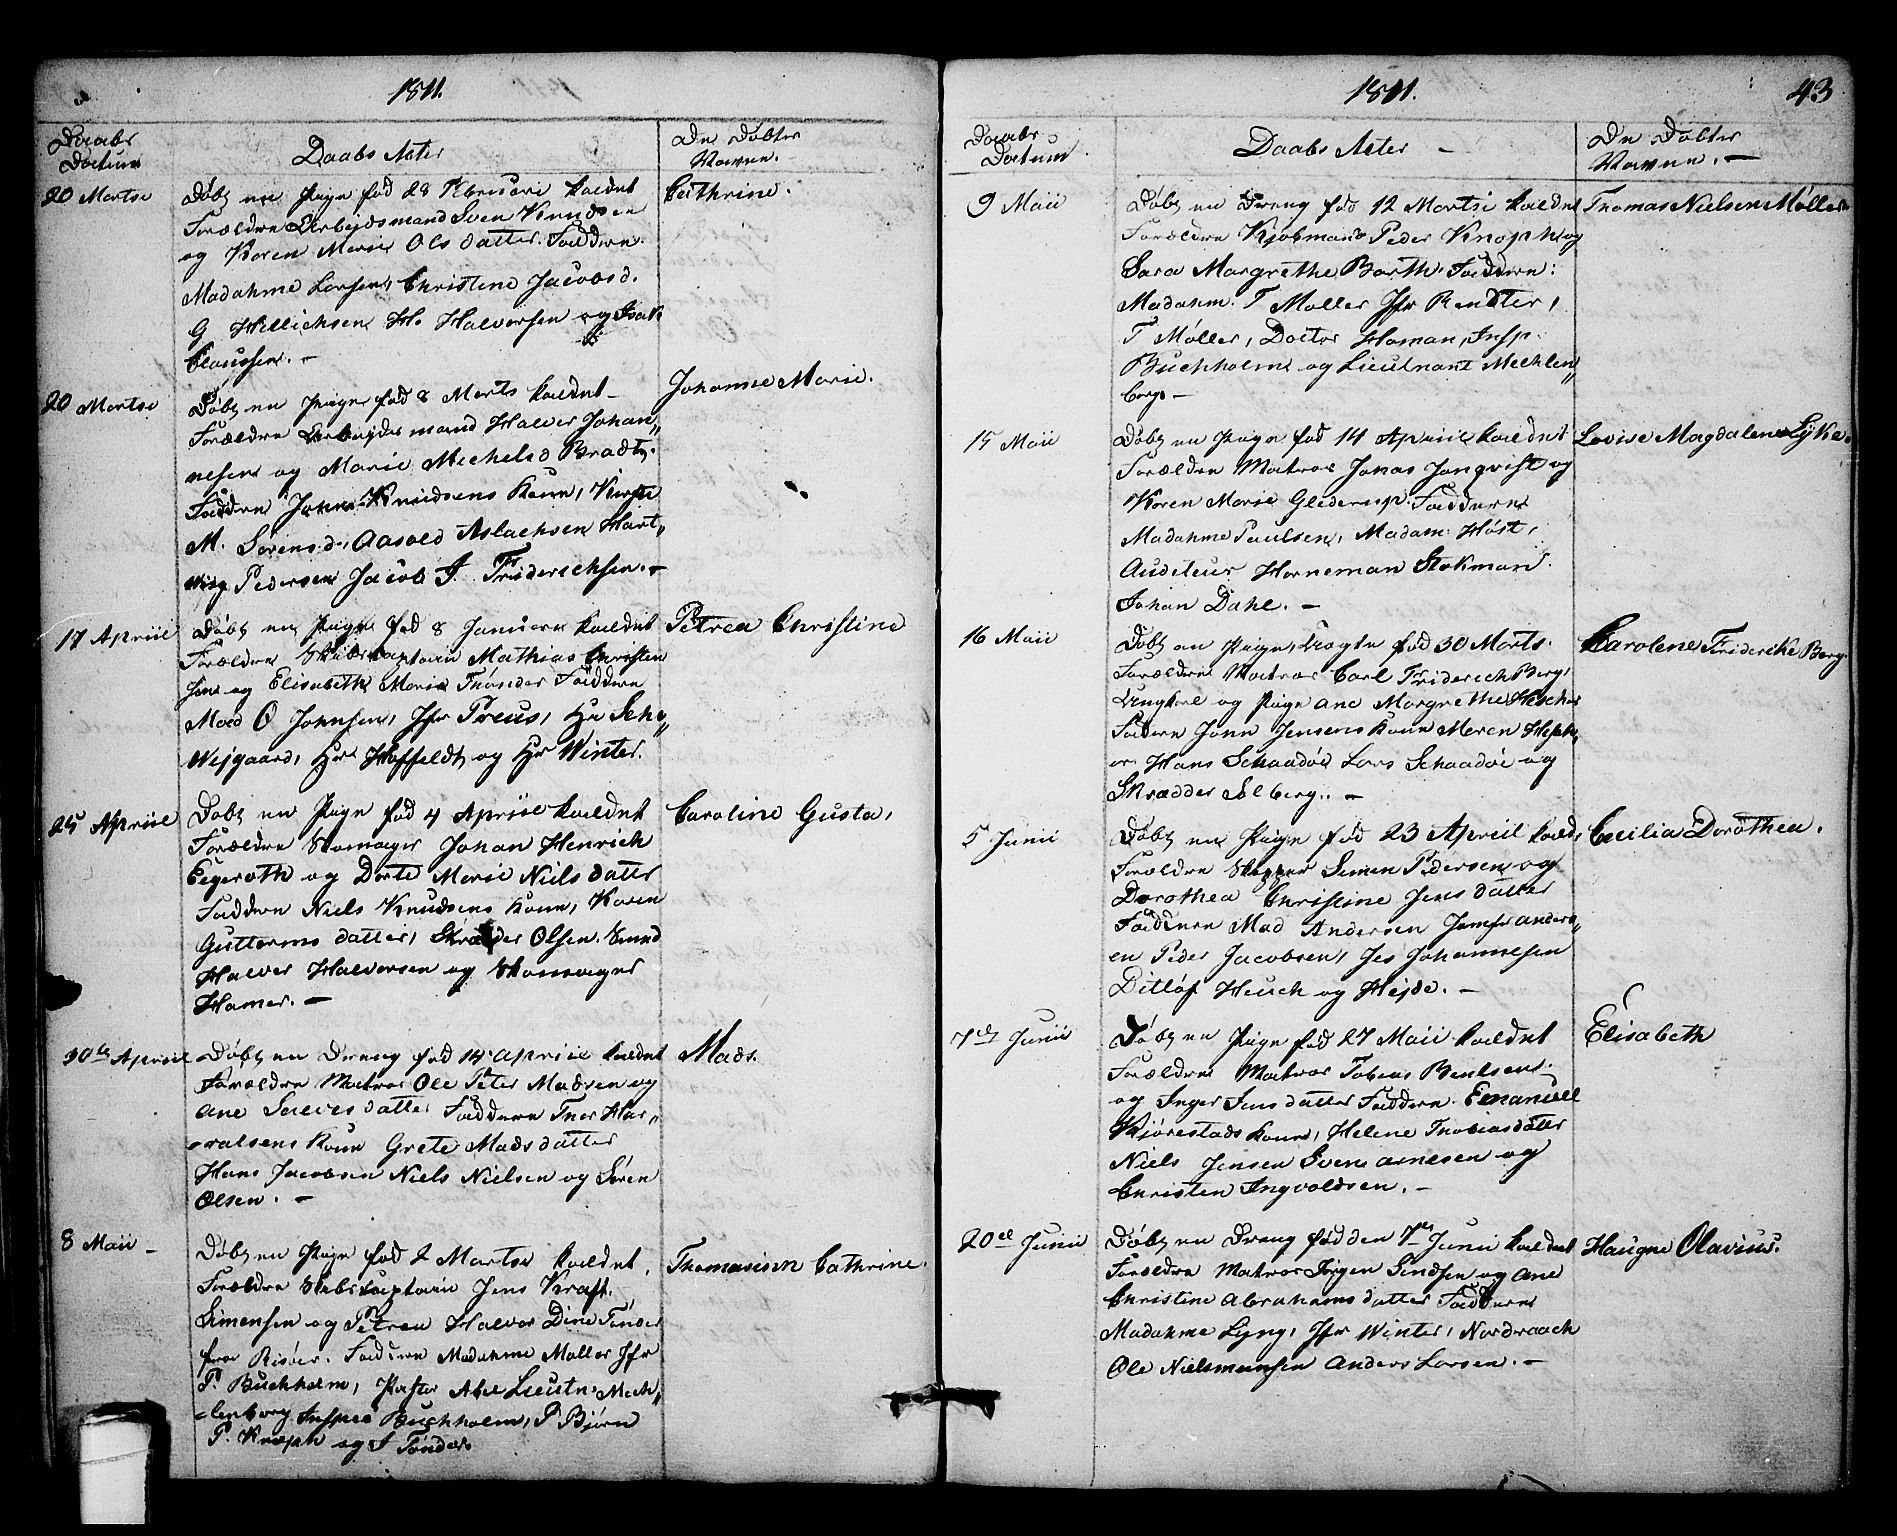 1811.
Daabs Datum
Daabs Acter
De Døbtes Navne.
20 Martsi
Døbt en Pige fød 28 Februari kaldet
Forældre Arbejdsmand Sven Knudsen
og Karen Marie Olsdatter. Faddere.
Madahme Larsen, Christine Jacobsd.
G Hellichsen H. Halvorsen og Isak
Claussen. —
Cathrine.
20 Martsi
Døbt en Pige fød 8 Marts kaldet —
Forældre Arbejdsmand Halvor Johan„
nesen og Marie Michelsd Bradt.
Faddere John Knudsens Kone, Kirste
M. Sørensd., Aasold Aslachsen Hart„
wig Pedersen Jacob J. Friderichsen. —
Johanne Marie.
17 Apriil
Døbt en Pige fød 8 Januari kaldet
Forældre Skibscaptain Mathias Christen
sen og Elisabeth Marie Tønder Faddere
Mad O Johnsen, Jfr Preus, Hr Sche„
Wejgaard, Hr Hoffeldt og Hr Winter.
Petrea Christine
25 Apriil
Døbt en Pige fød 4 Apriil kaldet
Forældre Skomager Johan Henrich
Egeroth og Dorte Marie Nielsdatter
Faddere Niels Knudsens Kone, Karen
Guttormsdatter, Skrædder Olsen. Smed
Halvor Halvorsen og Skomager
Hamer. —
Caroline Gusta,
30te Apriil
Døbt en Dreng fød 14 Apriil kaldet
Forældre Matros Ole Peter Madsen og
Ane Salvesdatter Faddere Tner Har„
valsens Kone Grete Madsdatter
Hans Jacobsen Niels Nielsen og Søren
Olsen. —
Mads.
8 Maii —
Døbt en Pige fød 2 Martsi kaldet,
Forældre Skibscaptain Jens Kraft
Simensen og Petrea Halvor Dine Tønder
fra Risøer. Faddere Madahme Møller Jfr
P. Buchholm, Pastor Abel Lieutn. Mech„
lenborg Inspec Buchholm, P Bjørn
P. Knoph og J Tønder.
Thomasinn Cathrine.
1811.
43
Daabs Datum
Daabs Acter —
De Døbtes Navne. —
9 Maii
Døbt en Dreng fød 12 Martsi kaldet
Forældre Kjøbmand Peder Knoph og
Sara Margrethe Barth. Faddere:
Madahm. T Møller Jfr Rendter,
T Møller, Doctor Homan, Insp.
Buchholm og Lieutnant Mechlen„
borg —
Thomas Nielsen Møller
15 Maii
Døbt en Pige fød 14 Apriil kaldet
Forældre Matros Jonas Jonqvist og
Karen Marie Glederup. Faddere
Madahme Paulsen, Madam Høst,
Auditeur Horneman Stokman
Johan Dahl. —
Lovise Magdalena Lyke.
16 Maii
Døbt en Pige, uægte fød 30 Marts.
Forældre Matros Carl Friderich Berg,
Ungkarl og Pige Ane Margrethe Hescher
Faddere John Jensens Kone Meren Heph„
er. Hans Schaadøe Lars Schaadøe og
Skrædder Solberg. —
Carolene Friderike Berg.
5 Junii
Døbt en Pige fød 23 Apriil kald,
Forældre Skipper Simen Pedersen og
Dorothea Christine Jensdatter
Faddere Mad Andersen Jomfr Anders„
en Peder Jacobsen, Jes Johannesen
Ditløf Heuch og Hejde. —
Cecilia Dorothea.
7de Junii
Døbt en Pige fød 27 Maii kaldet
Forældre Matros Tobias Bentsen.
og Inger Jensdatter Faddere. Emanuell
Kjørestads Kone, Helene Thobiasdatter
Niels Jensen Sven Arnesen og
Christen Ingvoldsen. —
Elisabeth
20de Junii
Døbt en Dreng fød den 7de Junii kaldet
Forældre Matros Jørgen Sindsen og Ane
Christine Abrahamsdatter Faddere
Madahme Lyng, Jfr Winter, Nordraach
Ole Nielsmensen Anders Larsen. —
Haugne Olavius.